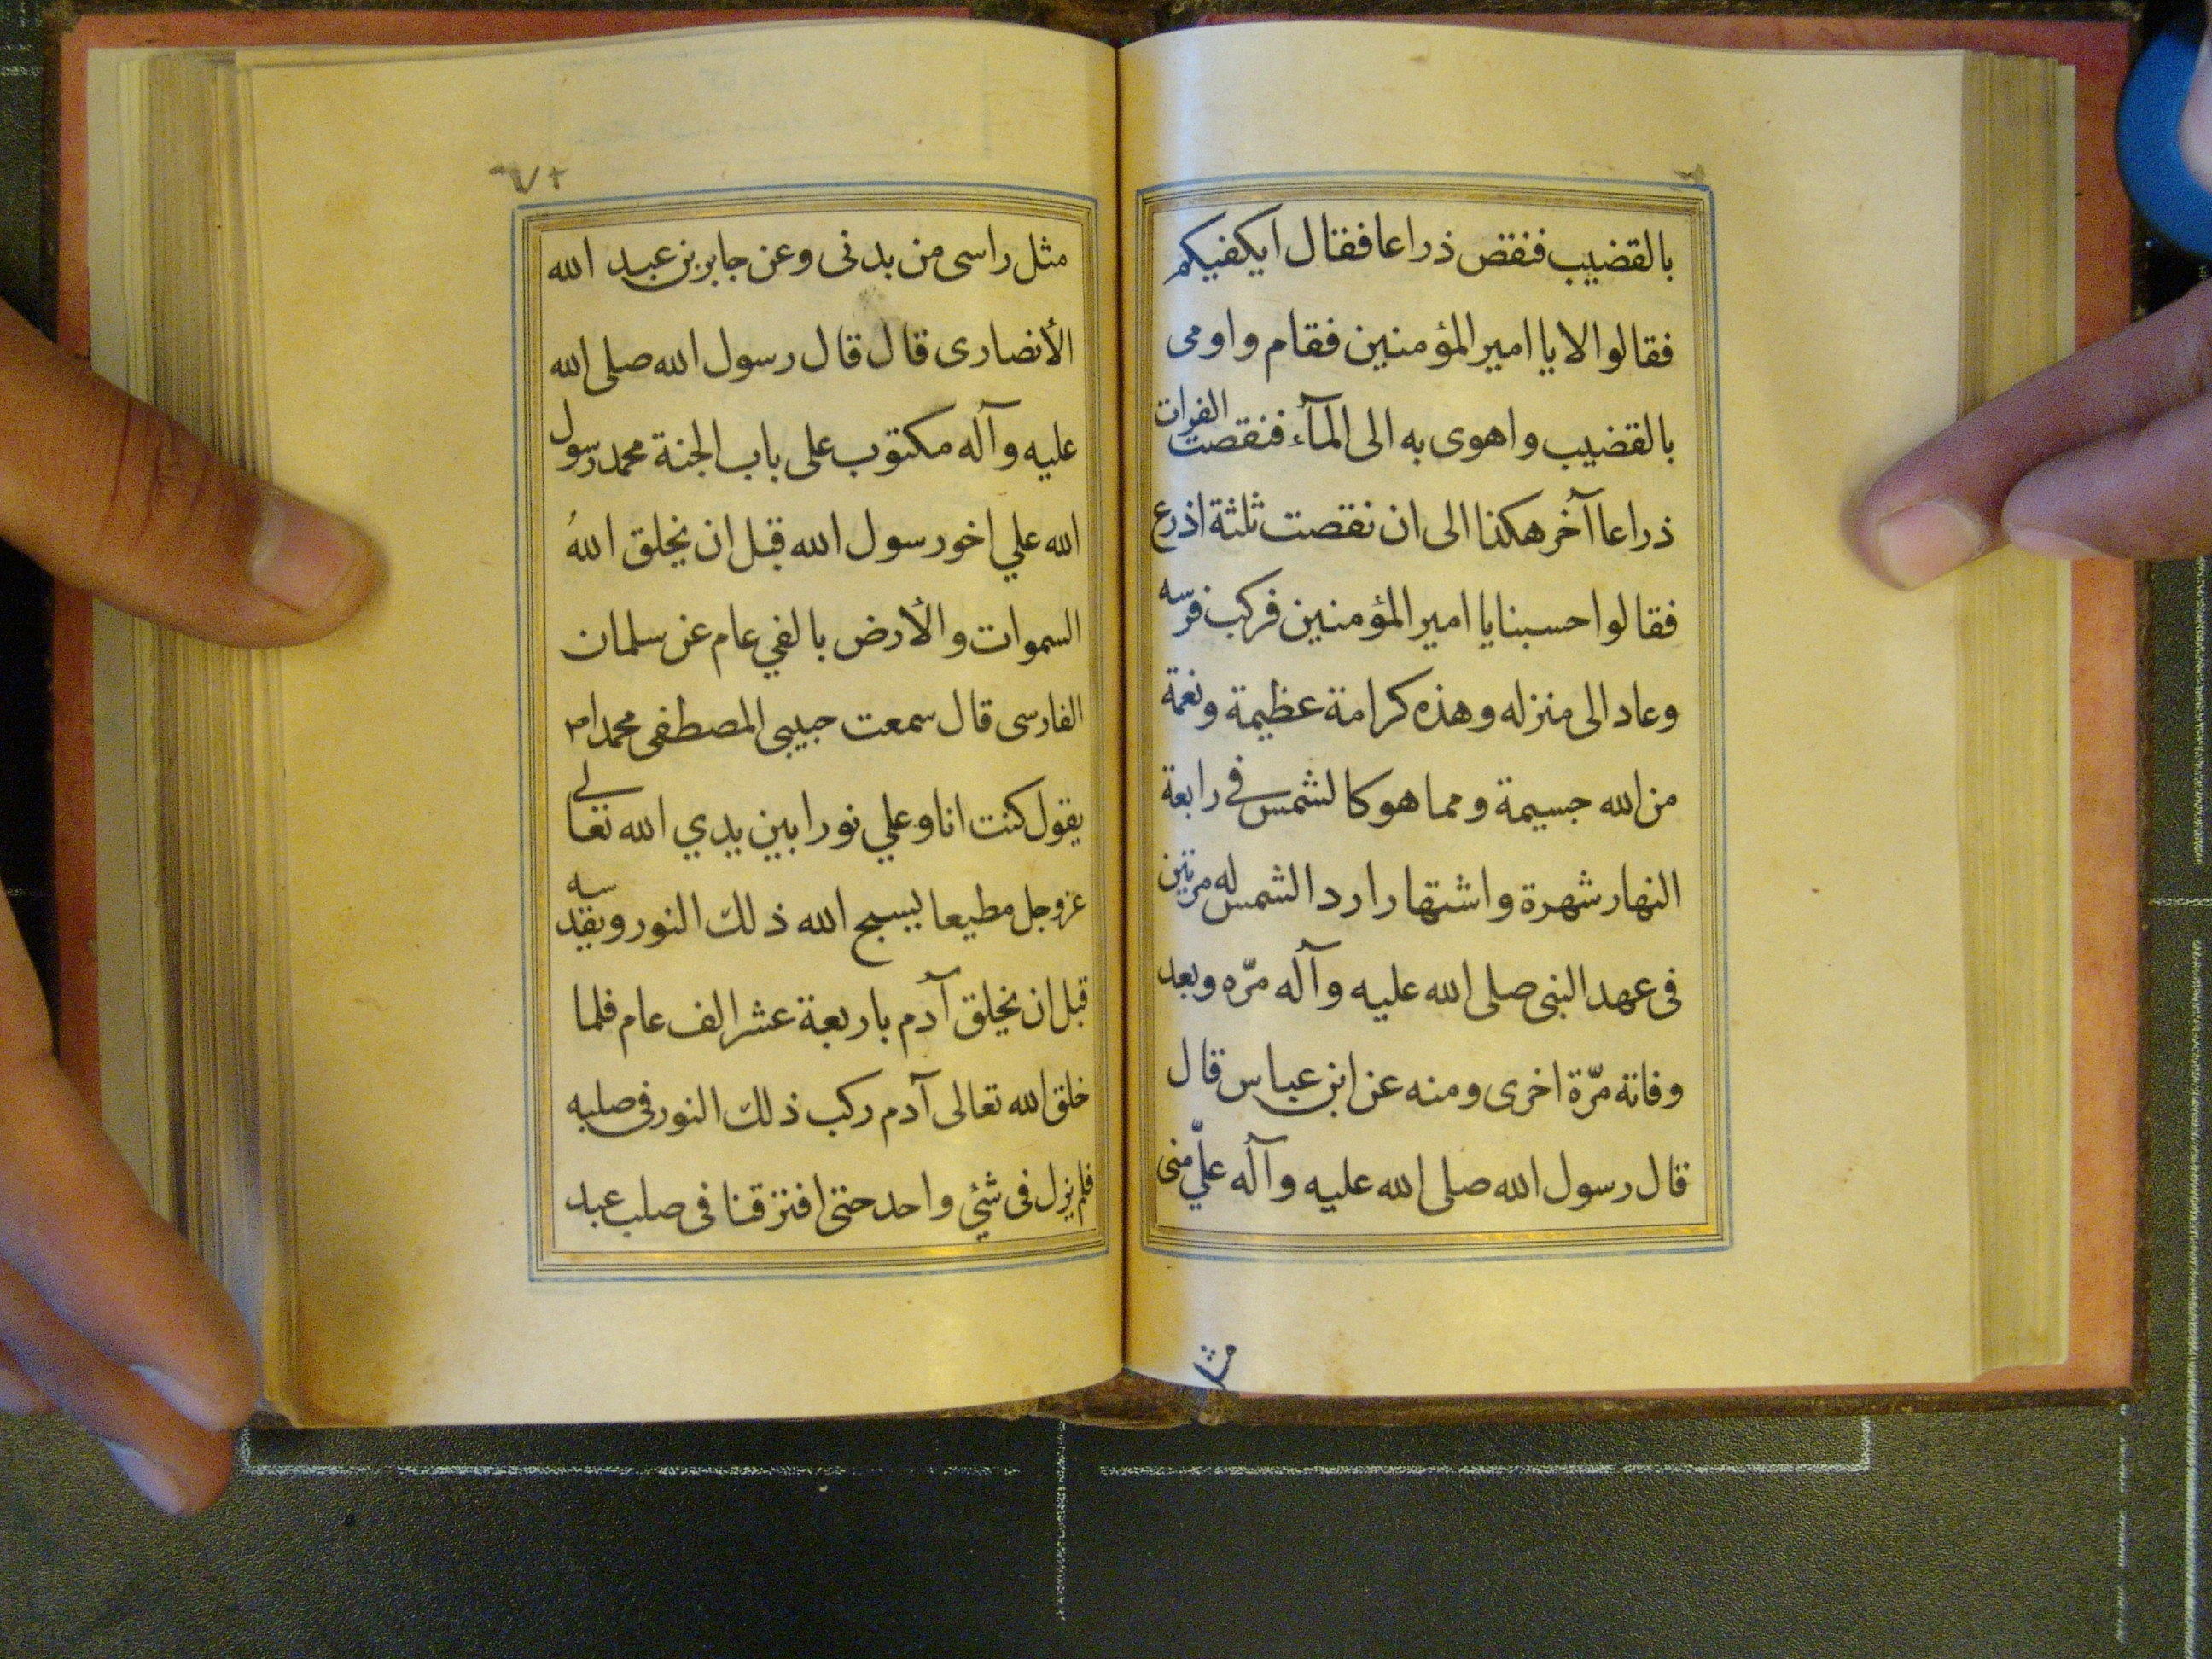 بالقضيب فنقص ذراعا فقال ايكفيكم
فقالوا لا يا امير المؤمنين فقام واومى
بالقضيب واهوى به الى المآء فنقصت الفرات
ذراعا آخر هكذا الى ان نقصت ثلثة اذرع
فقالوا حسبنا يا امير المؤمنين فركب فرسه
وعاد الى منزله وهذه كرامة عظيمة ونعمة
من الله جسيمة ومما هو كالشمس في رابعة
النهار شهرة واشتهارا رد الشمس له مرتين
فى عهد النبى صلى الله عليه وآله مرّه وبعد
وفاته مرّة اخرى ومنه عن ابن عباس قال
قال رسول الله صلى الله عليه وآله عليّ منى
مثل
مثل راسى من بدنى وعن جابر بن عبد الله
الأنصارى قال قال رسول الله صلى الله
عليه وآله مكتوب على باب الجنة محمد رسول
الله علي اخو رسول الله قبل ان يخلق اللهُ
السموات والأرض بالفي عام عن سلمان
الفارسى قال سمعت حبيبى المصطفى محمدا ص
يقول كنت انا وعلي نورا بين يدي الله تعالى
عز وجل مطيعا يسبح الله ذلك النور ويقدسه
قبل ان يخلق آدم باربعة عشر الف عام فلما
خلق الله تعالى آدم ركب ذلك النور فى صلبه
فلم يزل فى شئي واحد حتى افترقنا فى صلب عبد